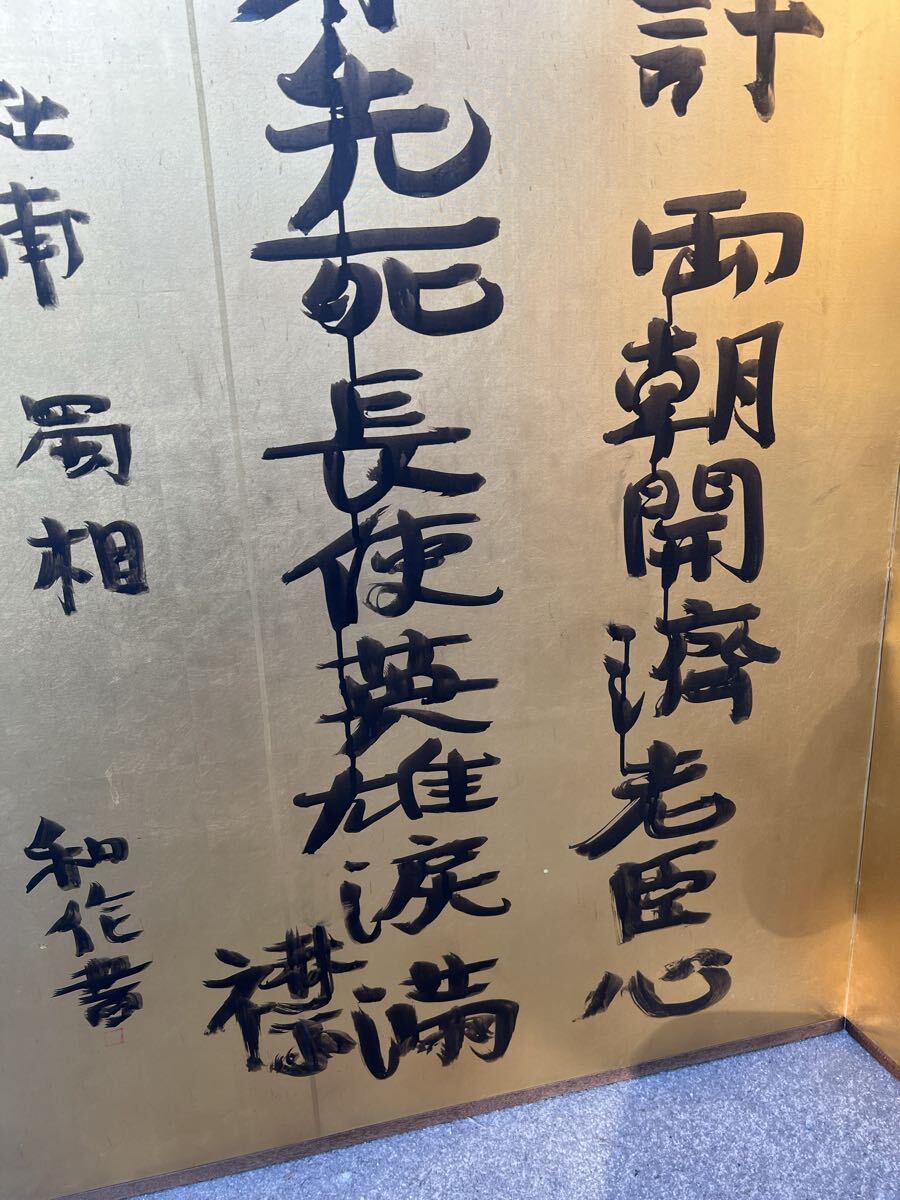 計 両朝開濟老臣心
先死長使英雄涙満
襟
杜甫 蜀相
和作書